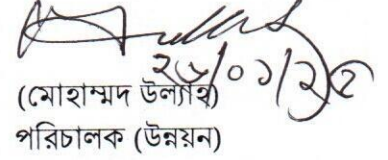 ২৮/০১/২৫
(মোহাম্মদ উল্যাহ)
পরিচালক (উন্নয়ন)